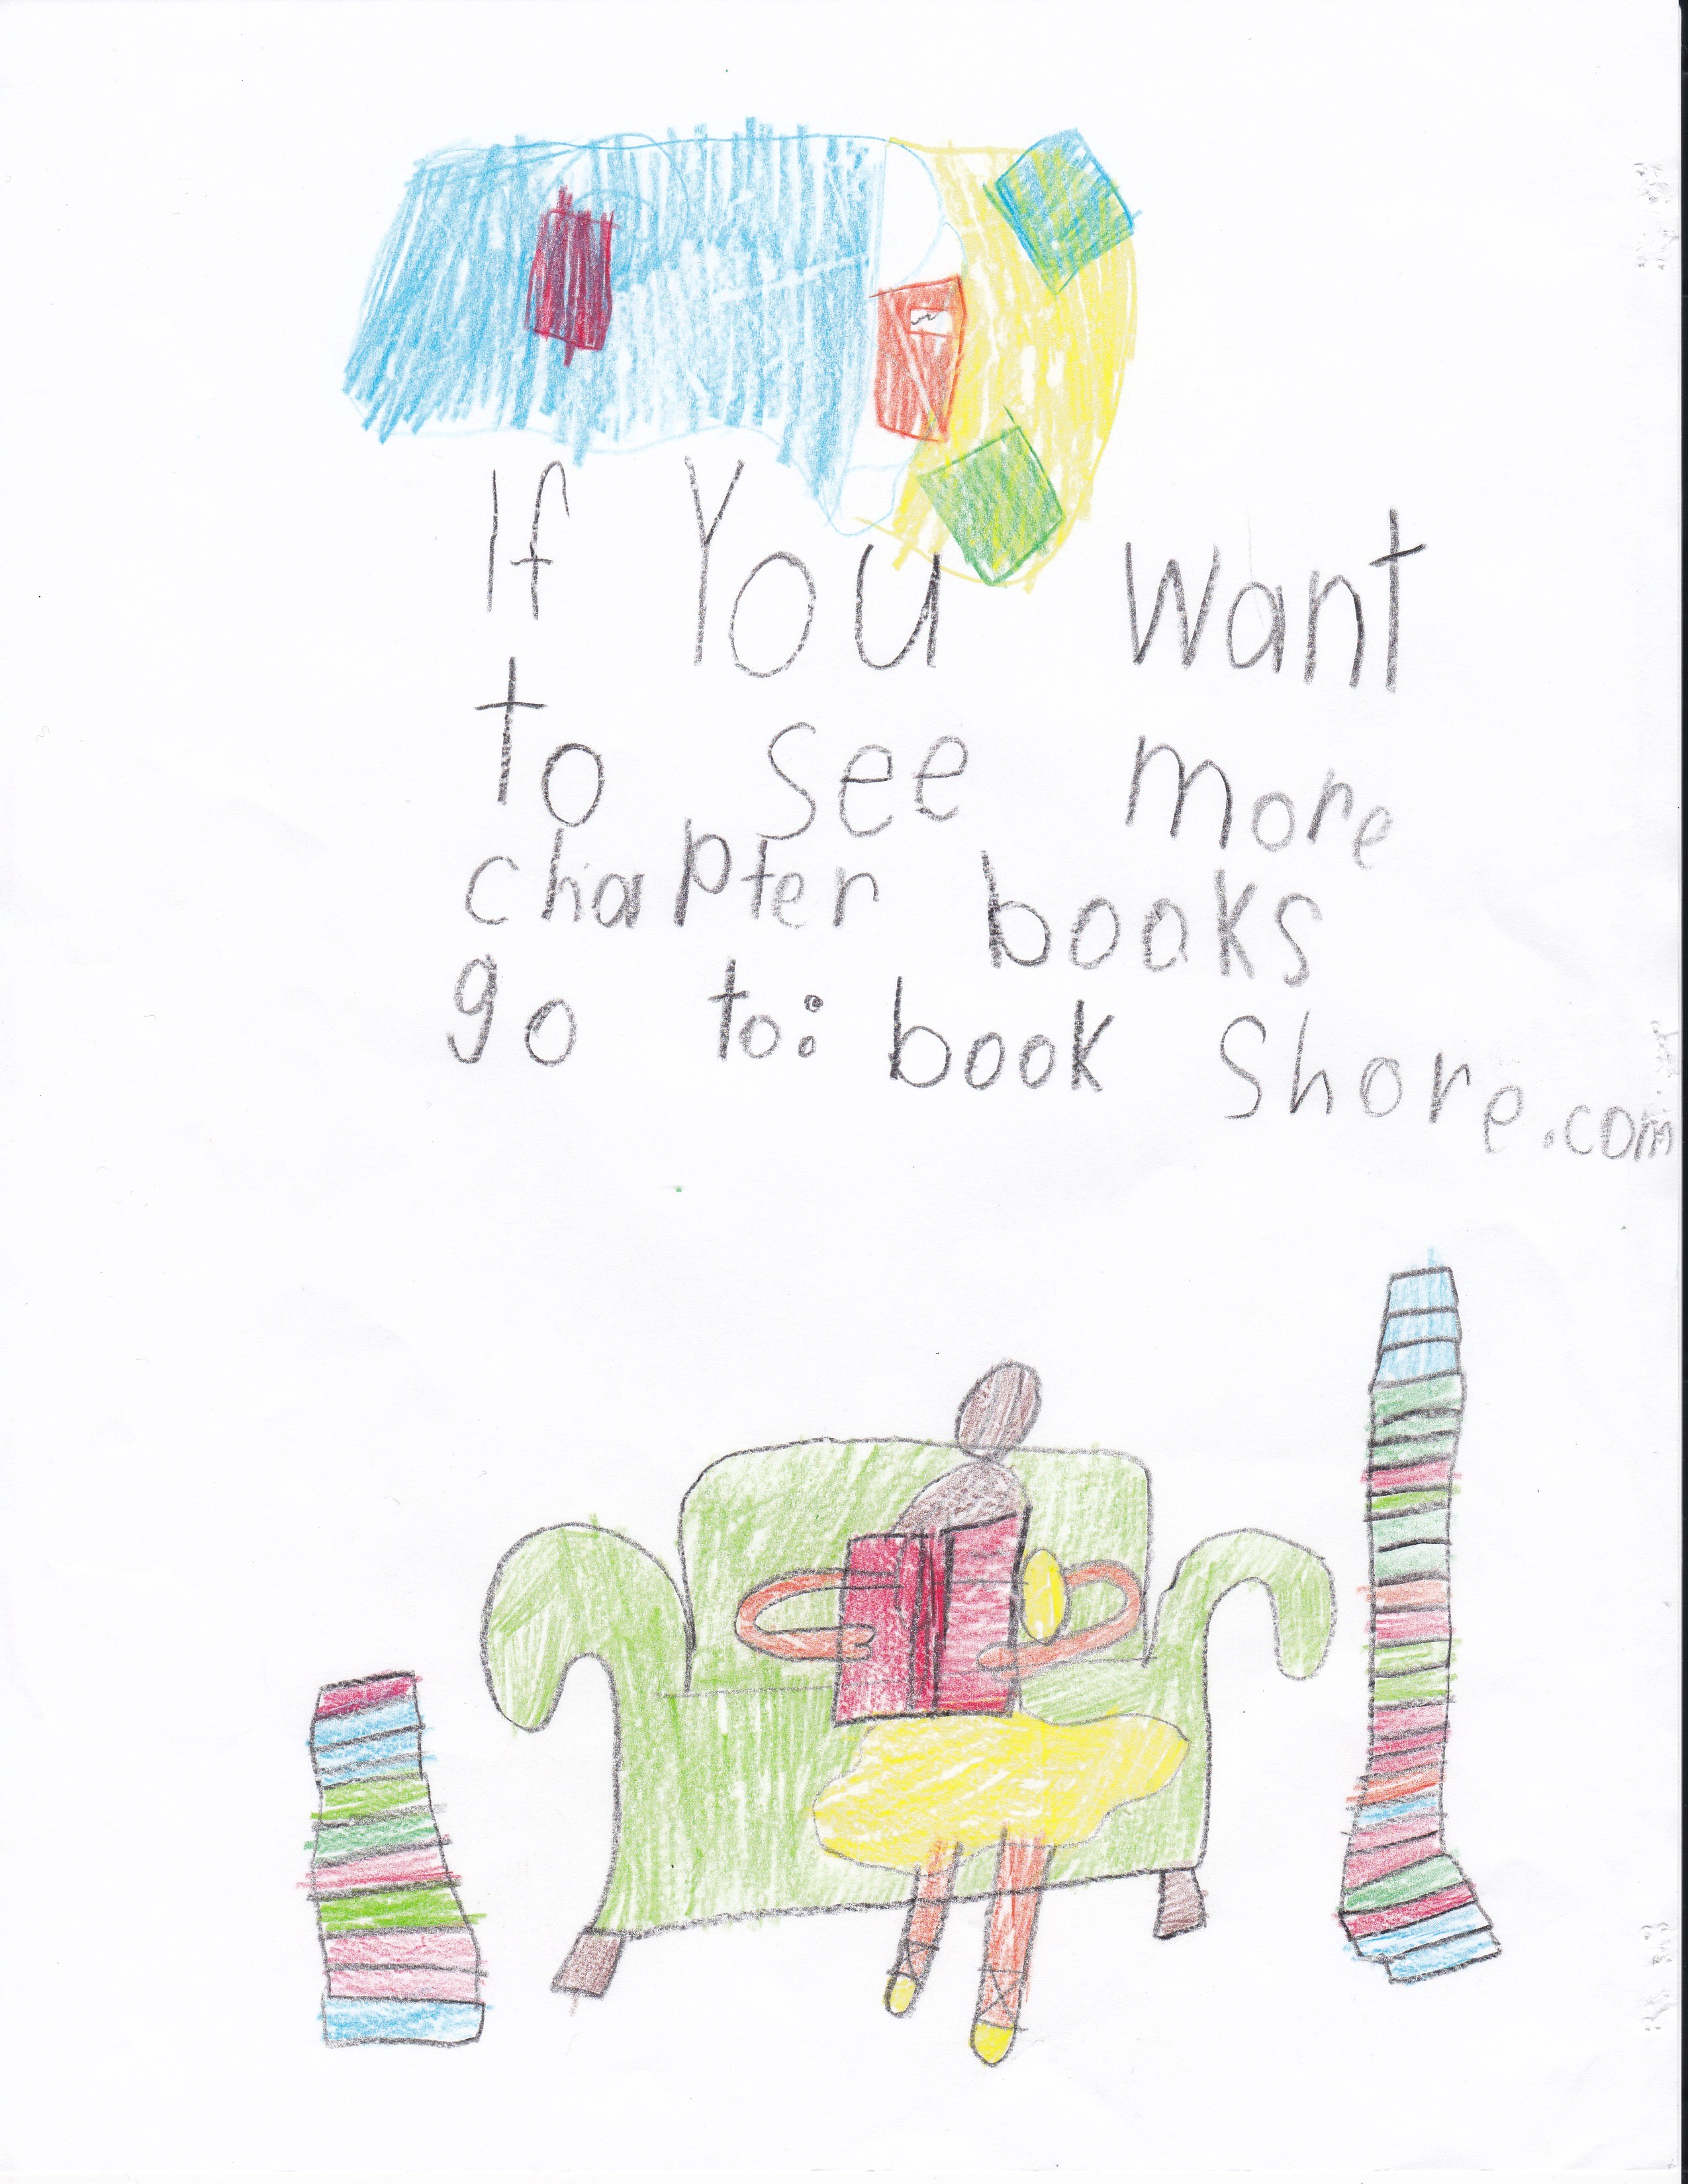 If You want
to see more
chapter books
go to: book shore.com